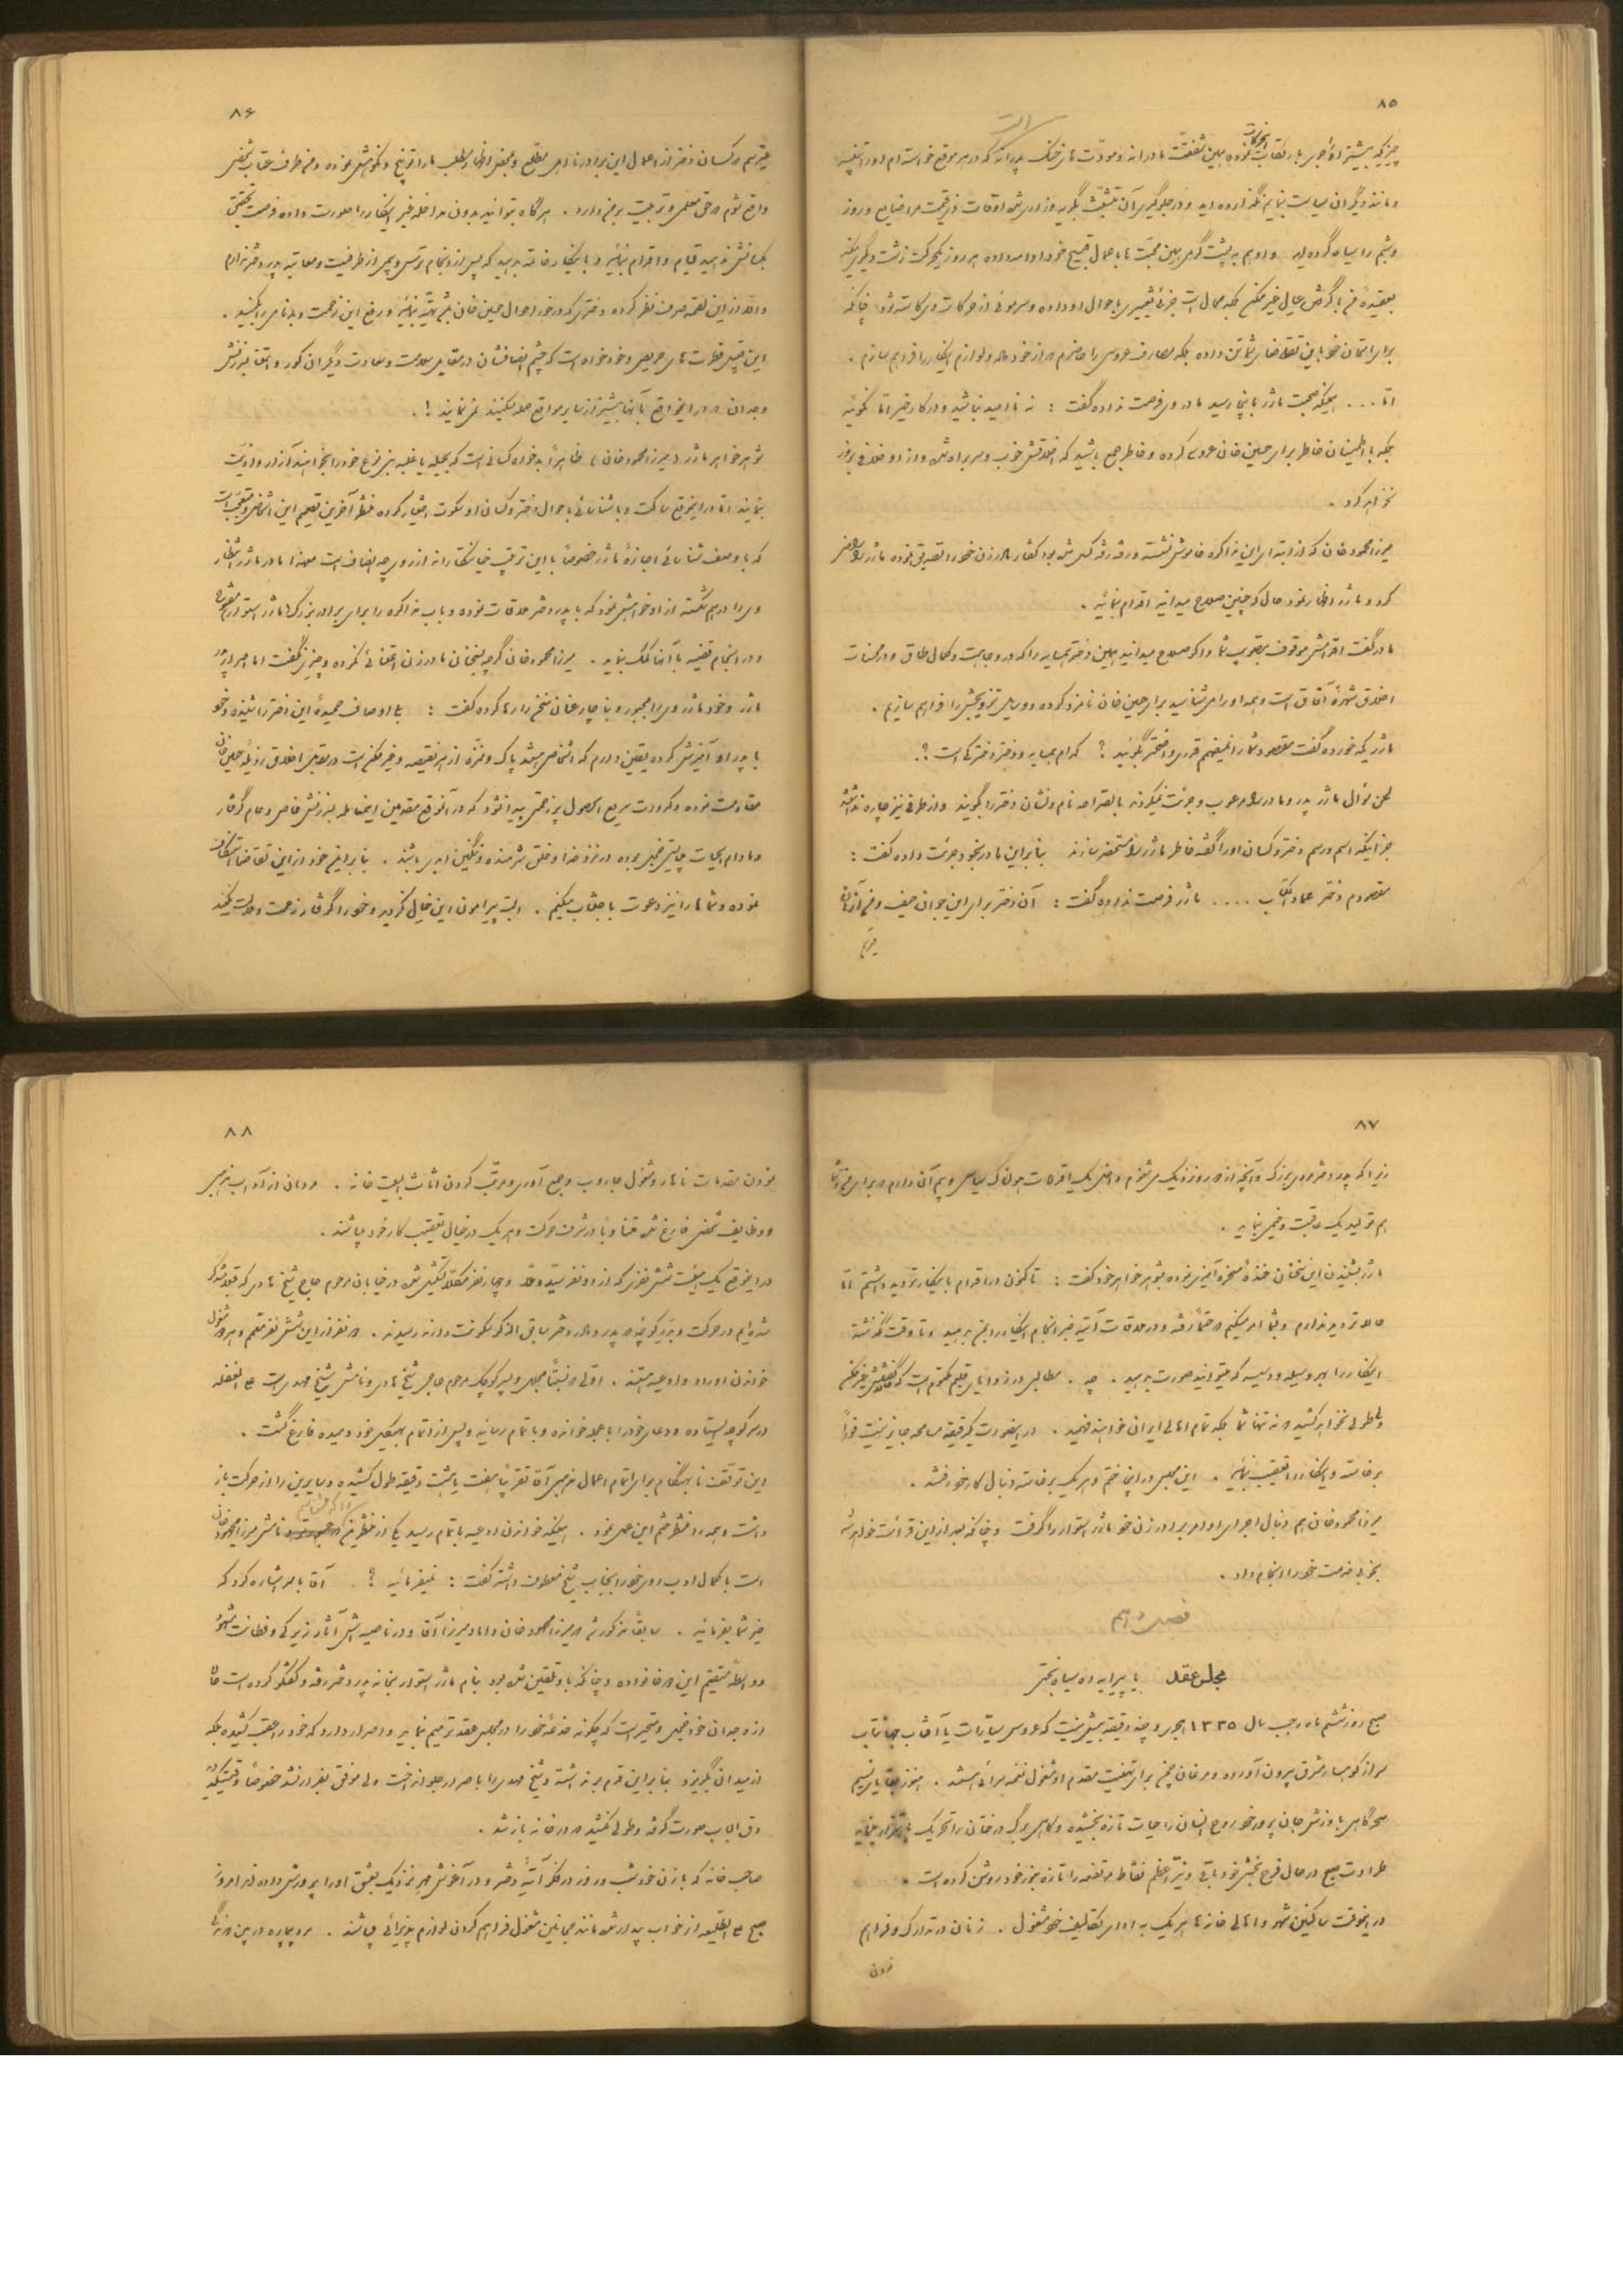 ۸۵
چیزیکه بیشتر او را جری بارتکاب نموده همین شفقت مادرانه و مودت های خنک پدرانه که در هر موقع خواسته ام او را تنبیه
و مانند دیگران سیاست نمایم نگذارده اید و در جلوگیری آن تشبث بگریه و زاری شده اوقات ذیقیمت مرا ضایع و روز
و شبم را سیاه کرده اید و او هم به پشت گرمی همین محبت ها باعمال قبیح خود ادامه داده هر روز یک حرکت زشت دیگری میکند
بعقیده من با گرفتن عیال خیر ممکن بلکه محال است جزئی تغییری باحوال او داده و سر موئی از حرکات وی کاسته شود چنانکه
برای امتحان خود باین تقاضای شما تن داده بلکه مصارف عروسی را حاضرم از خود داده و لوازم اینکار را فراهم سازم .
اما .... همینکه صحبت ماژر باینجا رسید مادر وی فرصت نداده گفت : نه ناامید نباشید و در کار خیر اما نگوئید
بلکه با اطمینان خاطر برای حسین خان عروسی کرده و خاطر جمع باشید که اخلاقش خوب و سر براه شده و از او خلافی بروز
نخواهد کرد .
میرزا محمود خان که از ابتدای این مذاکره خاموش نشسته گفتار مادر زن خود را تصدیق نموده ماژر را راضی
کرد و ماژر اظهار نمود حال که چنین صلاح میدانید اقدام نمائید .
مادر گفت اقدامش موقوف بتصویب شما و اگر صلاح میدانید همین دختر همسایه را که در وجاهت و کمال طاق و در محسنات
اخلاق شهره آفاق است و همه او را می شناسید برای حسین خان نامزد کرده و وسایل تزویجش را فراهم سازیم .
ماژر یکه خورده گفت مقصود شما را نمیفهم قدری واضحتر بگوئید ؟ کدام همسایه و دختر دخترکی است ؟.
لحن سؤال ماژر پدر و مادر را مرعوب و جرئت نمیکردند بالصراحه نام و نشان دختر را گویند و از طرفی نیز چاره نداشتند
جز اینکه اسم و رسم دختر و کسان او را گفته خاطر ماژر را مستحضر سازند بنابراین مادر بخود جرئت داده گفت :
مقصودم دختر عماد الکتاب ..... ماژر فرصت نداده گفت : آن دختر برای این جوان حیف و من از آن
میترسم
۸۶
میترسم کسان دختر از اعمال این برادر ناهل مطلع و بمحض اظهار مطلب ما را توبیخ و نکوهش نموده و من طرف عتاب شخصی
واقع شوم حق معلمی و تربیت بر من دارد . هرگاه بتوانید بدون مداخله غیر اینکار را صورت داده فرصت تحقیق
بکسانش ندهید قیام و اقدام نمائید و باینکار خاتمه بدهید که پس از انجام ترسی و بیمی از طرفیت و معاتبه پدر دختر ندارم
و الا از این لقمه صرف نظر کرده دختری که در خور احوال حسین خان باشد تهیه نمائید و رفع این زحمت و بدنامی را بکنید .
این قبیل فطرت های حریص و خود خواه است که چشم انصافشان در مقابل سلامت و سعادت دیگران کور
وجدان در اینموقع بآنها بیشتر از سایر مواقع حمله میکنند نمی نمایند !.
شوهر خواهر ماژر ( میرزا محمود خان ) ظاهراً
نمایند اما در اینموقع ساکت و با شناسائی باحوال دختر و کسان او سکوت اختیار کرده منتظر آخرین تصمیم این اشخاص و متعجب است
که با وصف شناسائی اجازه ماژر خصوصاً با این ترتیب خیانتکارانه از روی چه انصاف است
وی را درهم شکسته از او خواهش نمود که با پدر دختر ملاقات نموده و باب مذاکره را برای برادر بزرگ ( ماژر استوار )
و در انجام قضیه با آنها کمک بنماید . میرزا محمود خان گرچه بسخنان مادر زن اعتنائی نکرده و چیزی نگفت اما اصرار
ماژر و خود ماژر وی را مجبور و بناچار عنان سخن را رها کرده گفت : با اوصاف حمیده این دختر را شنیده و خود
با پدر او آمیزش کرده یقین دارم که اشخاصی هستند پاک و منزه از هر نقیصه و غیر ممکن است در مقابل اخلاق رذیله حسین خان
مقاومت نموده و کدورت سریع الحصول پر زحمتی پیدا نشود که در آنموقع مقدمین اینمعامله بسرزنش خاص و عام گرفتار
و مادام الحیات پیش نفس خجل بوده در نزد خدا و خلق شرمنده و ننگین ابدی باشند . بنابراین من خود از این تقاضا استنکاف
نموده و شما ها را نیز دعوت باجتناب میکنم . البته پیرامون این خیال نگردید و خود را گرفتار زحمت و ملامت نکنید
۸۷
زیرا که پدر دختر مردی بزرگ و آنچه از دور و نزدیک می شنوم داخل یک اقدامات هولناک سیاسی و بیم آن دارم که برای من و شما
هم تولید یک عاقبت وخیمی نماید .
ماژر بشنیدن این سخنان خنده مسخره آمیزی نموده بشوهر خواهر خود گفت : تا کنون در اقدام باینکار تردید داشتم اما
حالا تردید ندارم و بشما امر میکنم که حتماً رفته و در ملاقات آتیه خبر انجام اینکار را بمن بدهید و تا وقت نگذشته
اینکار را بهر وسیله و دسیسه که میتوانید صورت بدهید . چه . مطالبی در زوایای قلبم مکتوم است که گفتنش غیر ممکن
ولی طولی نخواهد کشید که نه تنها شما بلکه تمام اهالی ایران خواهند فهمید . در اینصورت یکدقیقه مسامحه جایز نیست فوراً
برخاسته و اینکار را تعقیب نمائید . این مجلس در اینجا ختم و هر یک برخاسته دنبال کار خود رفتند .
میرزا محمود خان هم دنبال اجرای اوامر برادر زن خود ماژر استوار را گرفت و چنانکه بعد از این قرائت خواهد شد
بخوبی خدمت خود را انجام داد .
فصل دهم
مجلس عقد یا پیرایه ده سیاه بختی
صبح روز ششم ماه رجب سال ۱۳۳۵ هجری و چند دقیقه بیش نیست که عروس سیارات یا آفتاب جهانتاب
سر از کوهسار مشرق بیرون آورده و مرغان چمن برای تهنیت مقدم او مشغول نغمه سرائی هستند . هنوز بقایای نسیم
سحرگاهی با وزش جان پرور خود روح انسان را حیات تازه بخشیده و گاهی برگ درختان را تحریک باهتزاز مینماید
طراوت صبح در حال فرح بخشی خود باقی و نیر اعظم نقاط مرتفعه را تازه بنور خود روشن کرده است .
در اینوقت ساکنین شهر و اهالی خانه ها هر یک به ادای تکالیف خود مشغول . زنان در تدارک و فراهم
نمودن
۸۸
نمودن مقدمات ناهار و مشغول جاروب و جمع آوری و مرتب کردن اثاث البیت خانه . مردان از آداب مذهبی
و وظایف شخصی فارغ شده در شرف حرکت و هر یک در خیال تعقیب کار خود میباشند .
در اینموقع یک هیئت شش نفری که از دو نفر سید و ملا و چهار نفر مکلا تشکیل شده در خیابان مرحوم حاج شیخ هادی
شده ایم در حرکت و بنزدیک کوچه که پدر و مادر دختر سابق الذکر سکونت دارند رسیدند . دو نفر از این شش نفر معمم و هر دو مشغول
خواندن اوراد و ادعیه هستند . اولی که نسبتاً مجلل و پسر کوچک مرحوم حاجی شیخ هادی و نامش شیخ مهدی است علی الغفله
در سر کوچه ایستاده و دعای خود را با عجله خوانده و باتمام رسانید و پس از اتمام بهیکل خود دمیده فارغ گشت .
این توقف نابهنگام برای اتمام اعمال مذهبی آقا تقریباً هفت یا هشت دقیقه طول کشیده و سایرین را از حرکت باز
داشت و همه را منتظر ختم این عمل نمود . همینکه خواندن ادعیه باتمام رسید یکی از منتظرین نامش میرزا محمود خان
است با کمال ادب روی خود را بجانب شیخ معطوف داشته گفت : نمیفرمائید ؟ . آقا با سر اشاره کرد که
خیر شما بفرمائید . سابقاً مذکور شد که میرزا محمود خان داماد میرزا آقا و در ناصیه اش آثار زیرکی و فطانت مشهود
و واسطه مستقیم این دو خانواده و چنانکه باو تلقین شده بود بنام ماژر استوار بخانه پدر دختر رفته و گفتگو کرده است حالا
از وجدان خود خجل و متحیر است که چگونه خدعه خود را در مجلس عقد ترمیم نماید و اصرار دارد که خود را عقب کشیده بلکه
از میدان بگریزد بنابراین قدم برنداشته و شیخ مهدی را باصرار جلو انداخت ولی موفق بفرار نشد خصوصاً وقتیکه
دق الباب صورت گرفته و طولی نکشید که در خانه باز شد .
صاحب خانه که با زن خود شب و روز در فکر آتیه دختر و در آغوش مهر نزدیک بعشق او را پرورش داده اند امروز
صبح علی الطلیعه از خواب بیدار شده مانند مجانین مشغول فراهم کردن لوازم پذیرائی میباشند .